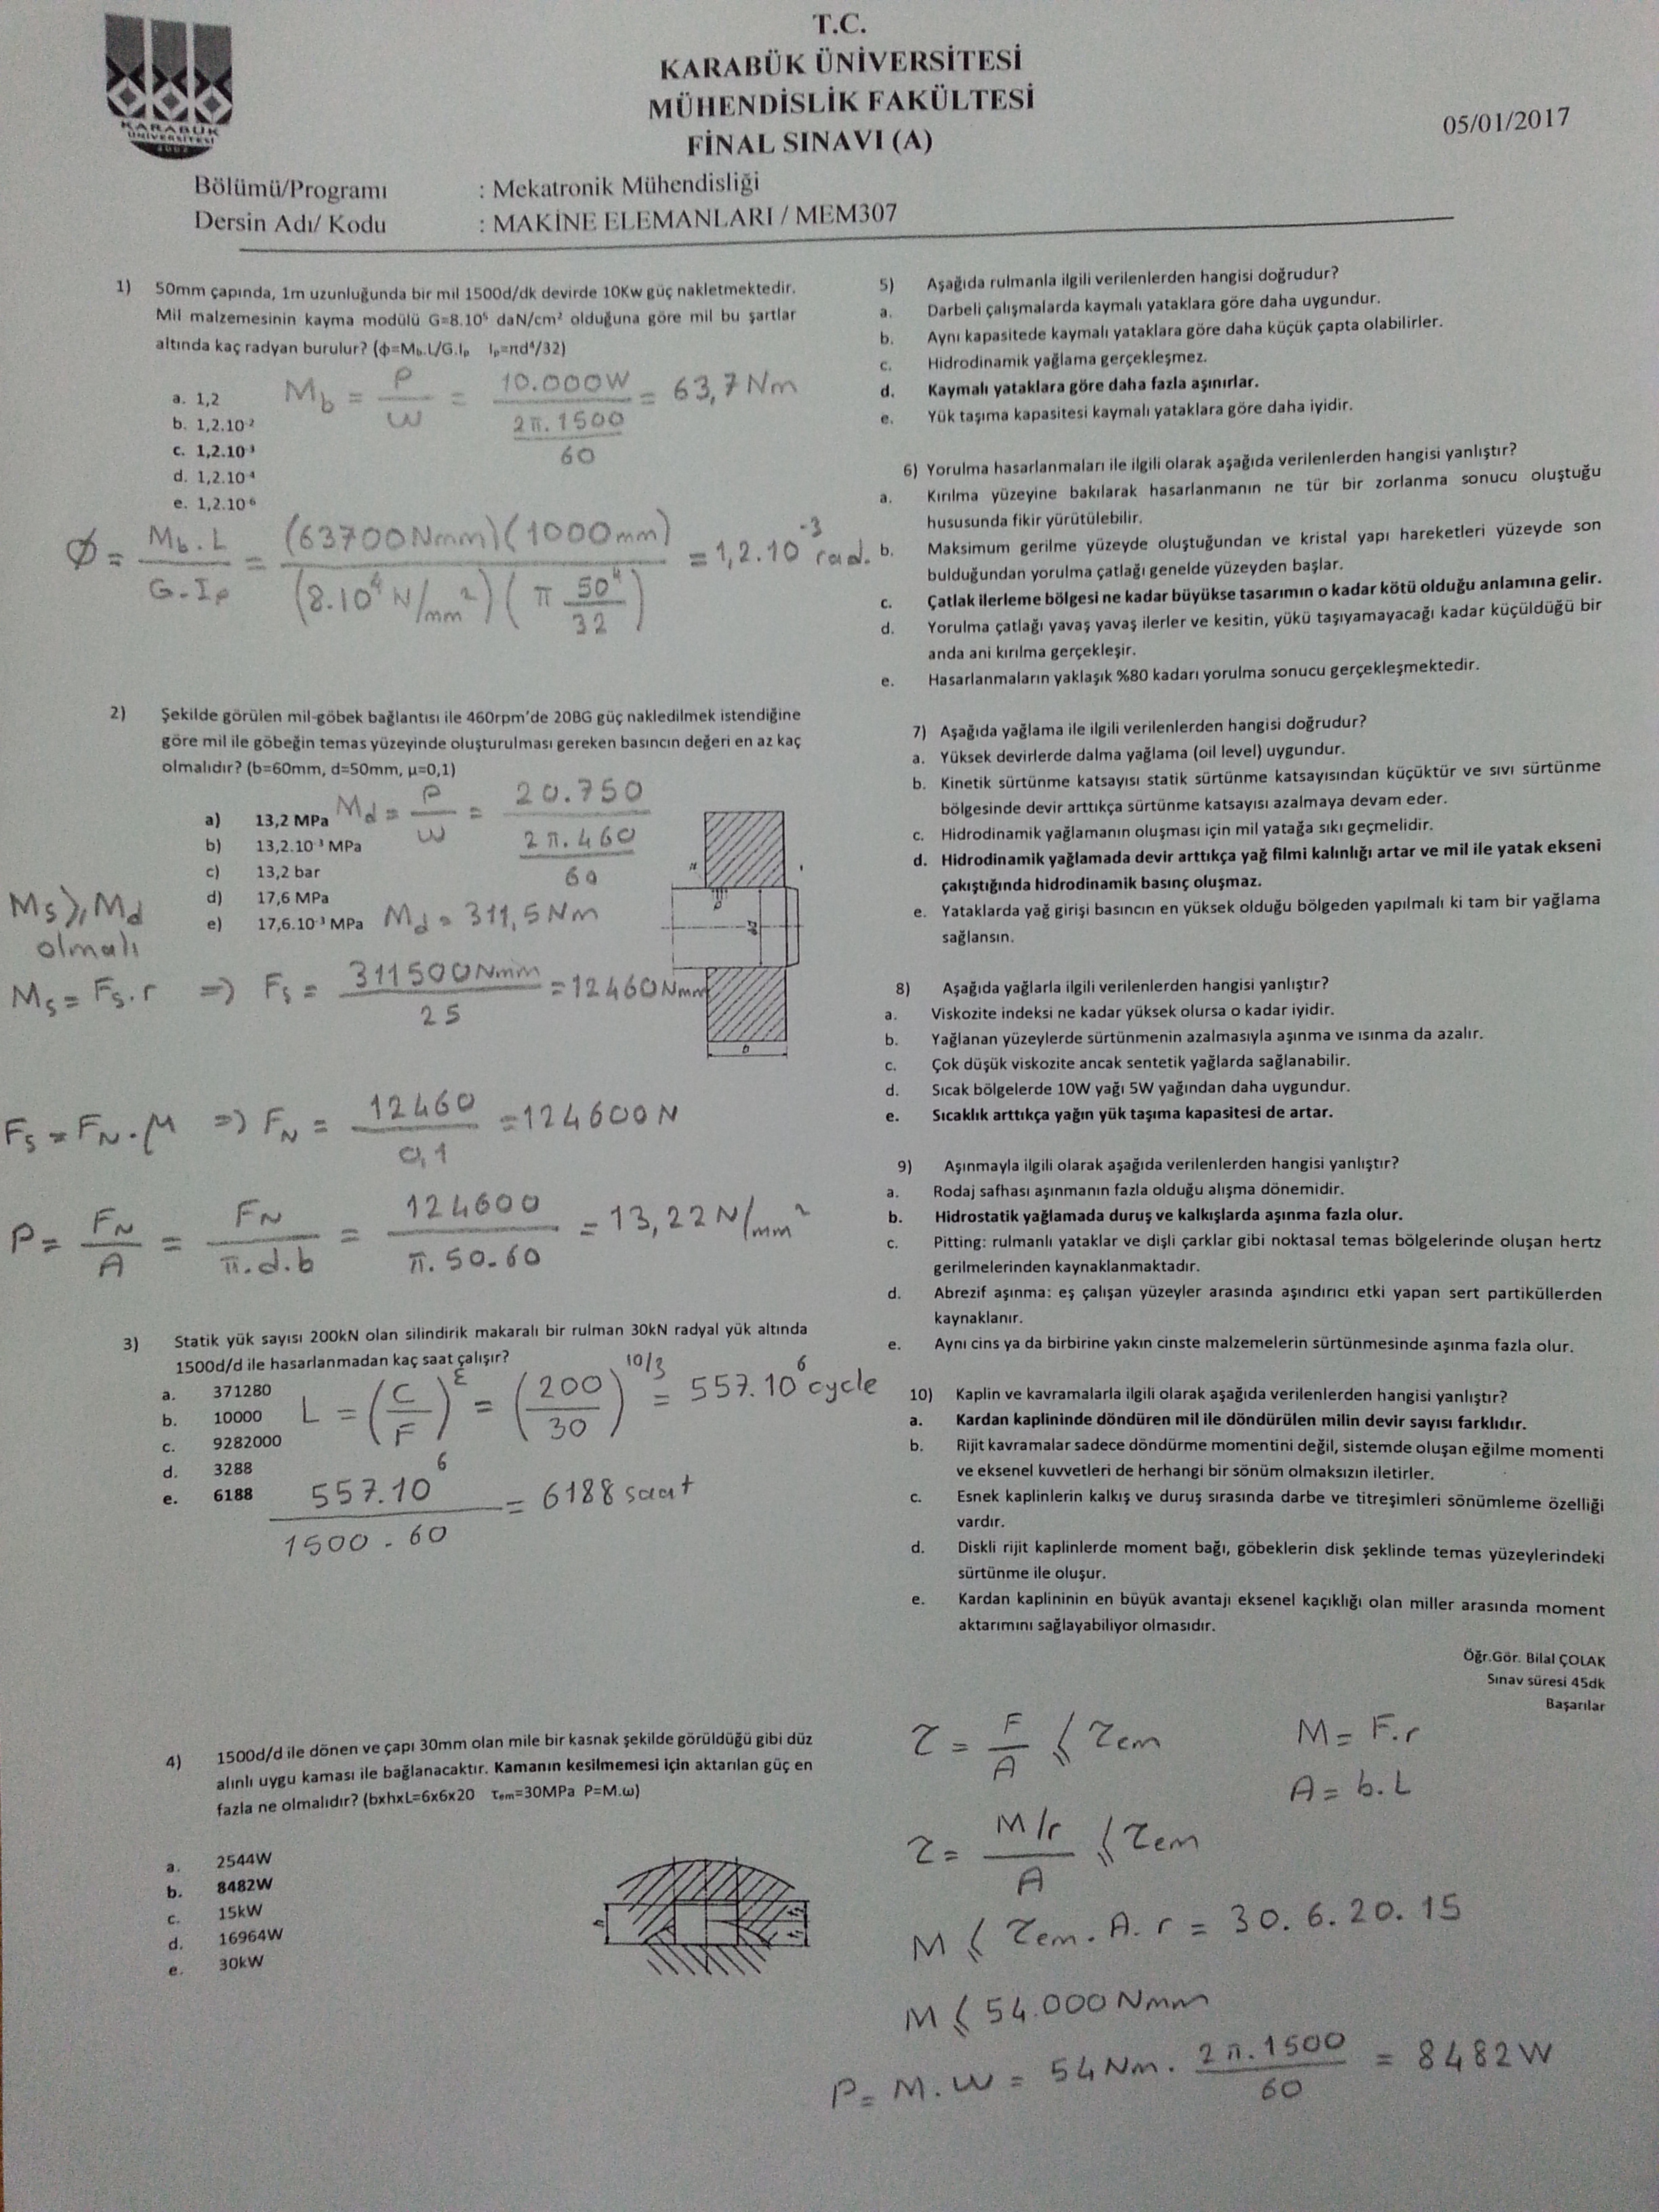 T.C.
KARABÜK ÜNİVERSİTESİ
MÜHENDİSLİK FAKÜLTESİ
FİNAL SINAVI (A)
05/01/2017
KARABÜK
ÜNİVERSİTESİ
Bölümü/Programı : Mekatronik Mühendisliği
Dersin Adı/ Kodu : MAKİNE ELEMANLARI / MEM307
1) 50mm çapında, 1m uzunluğunda bir mil 1500d/dk devirde 10Kw güç nakletmektedir.
Mil malzemesinin kayma modülü G=8.10⁵ daN/cm² olduğuna göre mil bu şartlar
altında kaç radyan burulur? (ϕ=M_b.L/G.I_p I_p=πd⁴/32)
a. 1,2
b. 1,2.10⁻²
c. 1,2.10⁻³
d. 1,2.10⁻⁴
e. 1,2.10⁻⁶
M_b = P/ω = 10.000W / (2π.1500/60) = 63,7 Nm
Ø = M_b.L / G.I_p = (63700Nmm)(1000mm) / (8.10⁴ N/mm²)(π 50⁴/32) = 1,2.10⁻³ rad.
2) Şekilde görülen mil-göbek bağlantısı ile 460rpm'de 20BG güç nakledilmek istendiğine
göre mil ile göbeğin temas yüzeyinde oluşturulması gereken basıncın değeri en az kaç
olmalıdır? (b=60mm, d=50mm, μ=0,1)
a) 13,2 MPa
b) 13,2.10⁻³ MPa
c) 13,2 bar
d) 17,6 MPa
e) 17,6.10⁻³ MPa
M_d = P/ω = 20.750 / (2π.460/60)
M_d = 311,5 Nm
M_s ⩾ M_d
olmalı
M_s = F_s.r => F_s = 311500Nmm / 25 = 12460Nmm
F_s = F_N.μ => F_N = 12460 / 0,1 = 124600 N
P = F_N / A = F_N / π.d.b = 124600 / π.50.60 = 13,22 N/mm²
3) Statik yük sayısı 200kN olan silindirik makaralı bir rulman 30kN radyal yük altında
1500d/d ile hasarlanmadan kaç saat çalışır?
a. 371280
b. 10000
c. 9282000
d. 3288
e. 6188
L = (C/F)^ε = (200/30)^10/3 = 557.10⁶ cycle
557.10⁶ / 1500.60 = 6188 saat
4) 1500d/d ile dönen ve çapı 30mm olan mile bir kasnak şekilde görüldüğü gibi düz
alınlı uygu kaması ile bağlanacaktır. Kamanın kesilmemesi için aktarılan güç en
fazla ne olmalıdır? (bxhxL=6x6x20 τ_em=30MPa P=M.ω)
a. 2544W
b. 8482W
c. 15kW
d. 16964W
e. 30kW
5) Aşağıda rulmanla ilgili verilenlerden hangisi doğrudur?
a. Darbeli çalışmalarda kaymalı yataklara göre daha uygundur.
b. Aynı kapasitede kaymalı yataklara göre daha küçük çapta olabilirler.
c. Hidrodinamik yağlama gerçekleşmez.
d. Kaymalı yataklara göre daha fazla aşınırlar.
e. Yük taşıma kapasitesi kaymalı yataklara göre daha iyidir.
6) Yorulma hasarlanmaları ile ilgili olarak aşağıda verilenlerden hangisi yanlıştır?
a. Kırılma yüzeyine bakılarak hasarlanmanın ne tür bir zorlanma sonucu oluştuğu
hususunda fikir yürütülebilir.
b. Maksimum gerilme yüzeyde oluştuğundan ve kristal yapı hareketleri yüzeyde son
bulduğundan yorulma çatlağı genelde yüzeyden başlar.
c. Çatlak ilerleme bölgesi ne kadar büyükse tasarımın o kadar kötü olduğu anlamına gelir.
d. Yorulma çatlağı yavaş yavaş ilerler ve kesitin, yükü taşıyamayacağı kadar küçüldüğü bir
anda ani kırılma gerçekleşir.
e. Hasarlanmaların yaklaşık %80 kadarı yorulma sonucu gerçekleşmektedir.
7) Aşağıda yağlama ile ilgili verilenlerden hangisi doğrudur?
a. Yüksek devirlerde dalma yağlama (oil level) uygundur.
b. Kinetik sürtünme katsayısı statik sürtünme katsayısından küçüktür ve sıvı sürtünme
bölgesinde devir arttıkça sürtünme katsayısı azalmaya devam eder.
c. Hidrodinamik yağlamanın oluşması için mil yatağa sıkı geçmelidir.
d. Hidrodinamik yağlamada devir arttıkça yağ filmi kalınlığı artar ve mil ile yatak ekseni
çakıştığında hidrodinamik basınç oluşmaz.
e. Yataklarda yağ girişi basıncın en yüksek olduğu bölgeden yapılmalı ki tam bir yağlama
sağlansın.
8) Aşağıda yağlarla ilgili verilenlerden hangisi yanlıştır?
a. Viskozite indeksi ne kadar yüksek olursa o kadar iyidir.
b. Yağlanan yüzeylerde sürtünmenin azalmasıyla aşınma ve ısınma da azalır.
c. Çok düşük viskozite ancak sentetik yağlarda sağlanabilir.
d. Sıcak bölgelerde 10W yağı 5W yağından daha uygundur.
e. Sıcaklık arttıkça yağın yük taşıma kapasitesi de artar.
9) Aşınmayla ilgili olarak aşağıda verilenlerden hangisi yanlıştır?
a. Rodaj safhası aşınmanın fazla olduğu alışma dönemidir.
b. Hidrostatik yağlamada duruş ve kalkışlarda aşınma fazla olur.
c. Pitting: rulmanlı yataklar ve dişli çarklar gibi noktasal temas bölgelerinde oluşan hertz
gerilmelerinden kaynaklanmaktadır.
d. Abrezif aşınma: eş çalışan yüzeyler arasında aşındırıcı etki yapan sert partiküllerden
kaynaklanır.
e. Aynı cins ya da birbirine yakın cinste malzemelerin sürtünmesinde aşınma fazla olur.
10) Kaplin ve kavramalarla ilgili olarak aşağıda verilenlerden hangisi yanlıştır?
a. Kardan kaplininde döndüren mil ile döndürülen milin devir sayısı farklıdır.
b. Rijit kavramalar sadece döndürme momentini değil, sistemde oluşan eğilme momenti
ve eksenel kuvvetleri de herhangi bir sönüm olmaksızın iletirler.
c. Esnek kaplinlerin kalkış ve duruş sırasında darbe ve titreşimleri sönümleme özelliği
vardır.
d. Diskli rijit kaplinlerde moment bağı, göbeklerin disk şeklinde temas yüzeylerindeki
sürtünme ile oluşur.
e. Kardan kaplininin en büyük avantajı eksenel kaçıklığı olan miller arasında moment
aktarımını sağlayabiliyor olmasıdır.
Öğr.Gör. Bilal ÇOLAK
Sınav süresi 45dk
Başarılar
τ = F/A ⩽ τem M = F.r
A = b.L
τ = M/r / A ⩽ τem
M ⩽ τem.A.r = 30.6.20.15
M ⩽ 54.000 Nmm
P = M.ω = 54 Nm. 2π.1500/60 = 8482 W